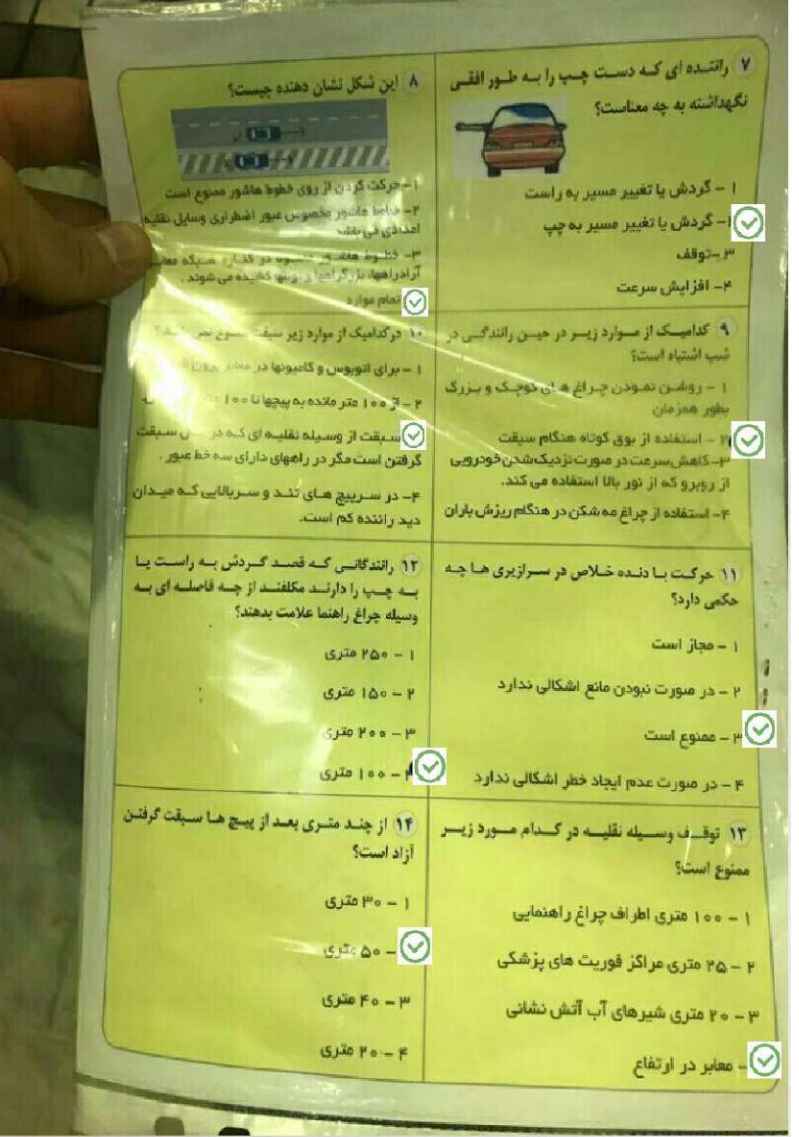 ۷ راننده ای که دست چپ را به طور افقی
نگهداشته به چه معناست؟
۱ - گردش یا تغییر مسیر به راست
گردش یا تغییر مسیر به چپ
۳- توقف
۴- افزایش سرعت
۸ این شکل نشان دهنده چیست؟
۱- حرکت کردن از روی خطوط هاشور ممنوع است
۲- خطوط هاشور مخصوص عبور اضطراری وسایل نقلیه
امدادی می باشد
۳- خطوط هاشور در کناره شبکه
آزادراهها، بزرگراهها کشیده می شوند .
تمام موارد
۹ کدامیک از موارد زیر در حین رانندگی در
شب اشتباه است؟
۱ - روشن نمودن چراغ های کوچک و بزرگ
بطور همزمان
۲ - استفاده از بوق کوتاه هنگام سبقت
۳- کاهش سرعت در صورت نزدیک شدن خودرویی
از روبرو که از نور بالا استفاده می کند.
۴- استفاده از چراغ مه شکن در هنگام ریزش باران
۱۰ در کدامیک از موارد زیر سبقت
۱ - برای اتوبوس و کامیونها در
۲ - از ۱۰۰ متر مانده به پیچها تا ۱۰۰
سبقت از وسیله نقلیه ای که در سبقت
گرفتن است مگر در راههای دارای سه خط عبور .
۴- در سرپیچ های تند و سربالایی که میدان
دید راننده کم است.
۱۱ حرکت با دنده خلاص در سرازیری ها چه
حکمی دارد؟
۱ - مجاز است
۲ - در صورت نبودن مانع اشکالی ندارد
۳ - ممنوع است
۴ - در صورت عدم ایجاد خطر اشکالی ندارد
۱۲ رانندگانی که قصد گردش به راست یا
به چپ را دارند مکلفند از چه فاصله ای به
وسیله چراغ راهنما علامت بدهند؟
۱ - ۲۵۰ متری
۲ - ۱۵۰ متری
۳ - ۲۰۰ متری
۴ - ۱۰۰ متری
۱۳ توقف وسیله نقلیه در کدام مورد زیر
ممنوع است؟
۱ - ۱۰۰ متری اطراف چراغ راهنمایی
۲ - ۲۵ متری مراکز فوریت های پزشکی
۳ - ۲۰ متری شیرهای آب آتش نشانی
- معابر در ارتفاع
۱۴ از چند متری بعد از پیچ ها سبقت گرفتن
آزاد است؟
۱ - ۳۰ متری
- ۵۰ متری
۳ - ۴۰ متری
۴ - ۲۰ متری